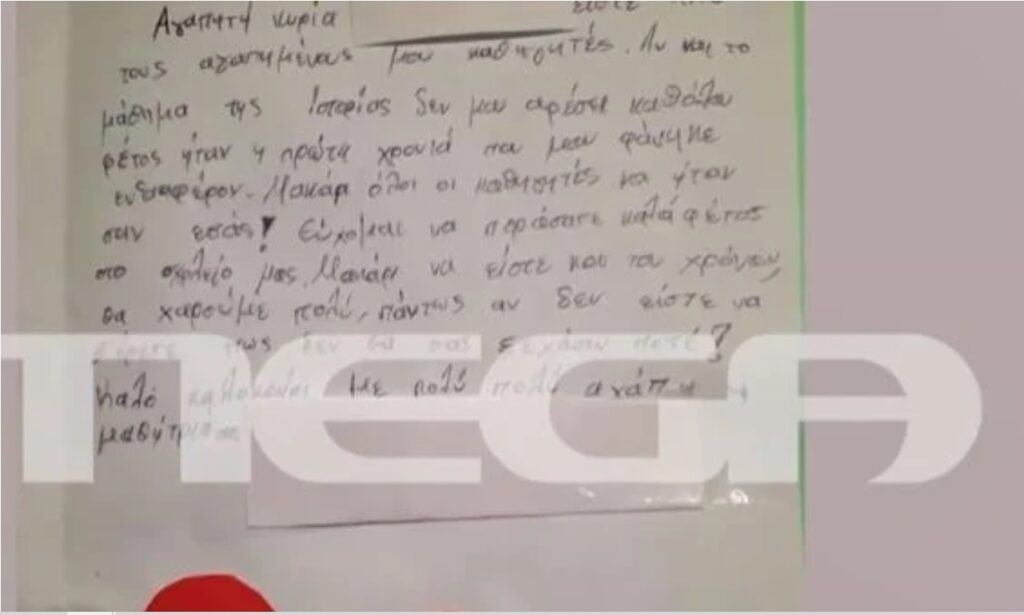 Αγαπητή κυρία είστε από
τους αγαπημένους μου καθηγητές. Αν και το
μάθημα της Ιστορίας δεν μου αρέσει καθόλου
φέτος ήταν η πρώτη χρονιά που μου φάνηκε
ενδιαφέρον. Μακάρι όλοι οι καθηγητές να ήταν
σαν εσάς! Εύχομαι να περάσατε καλά φέτος
στο σχολείο μας. Μακάρι να είστε και του χρόνου,
θα χαρούμε πολύ, πάντως αν δεν είστε να
ξέρετε πως δεν θα σας ξεχάσω ποτέ!
Καλό καλοκαίρι Με πολύ πολύ αγάπη η
μαθήτρια σας
MEGA